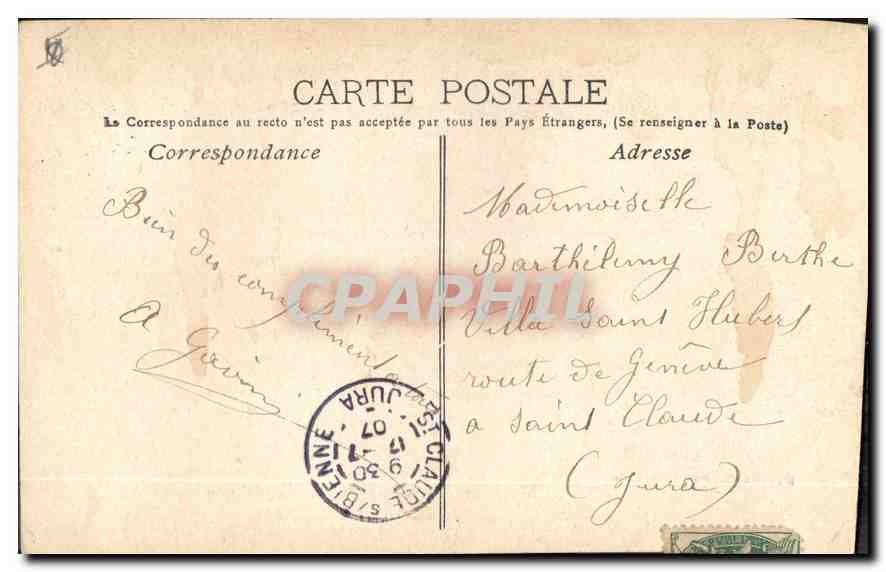 CARTE POSTALE
La Correspondance au recto n'est pas acceptée par tous les Pays Étrangers, (Se renseigner à la Poste)
Correspondance
Adresse
Bien des compliments à tous
A
Mademoiselle
Barthélemy Berthe
Villa Saint Hubert
route de Genève
a Saint Claude
(Jura)
ST CLAUDE S/BIENNE
JURA
9 30
17
07
CPAPHIL